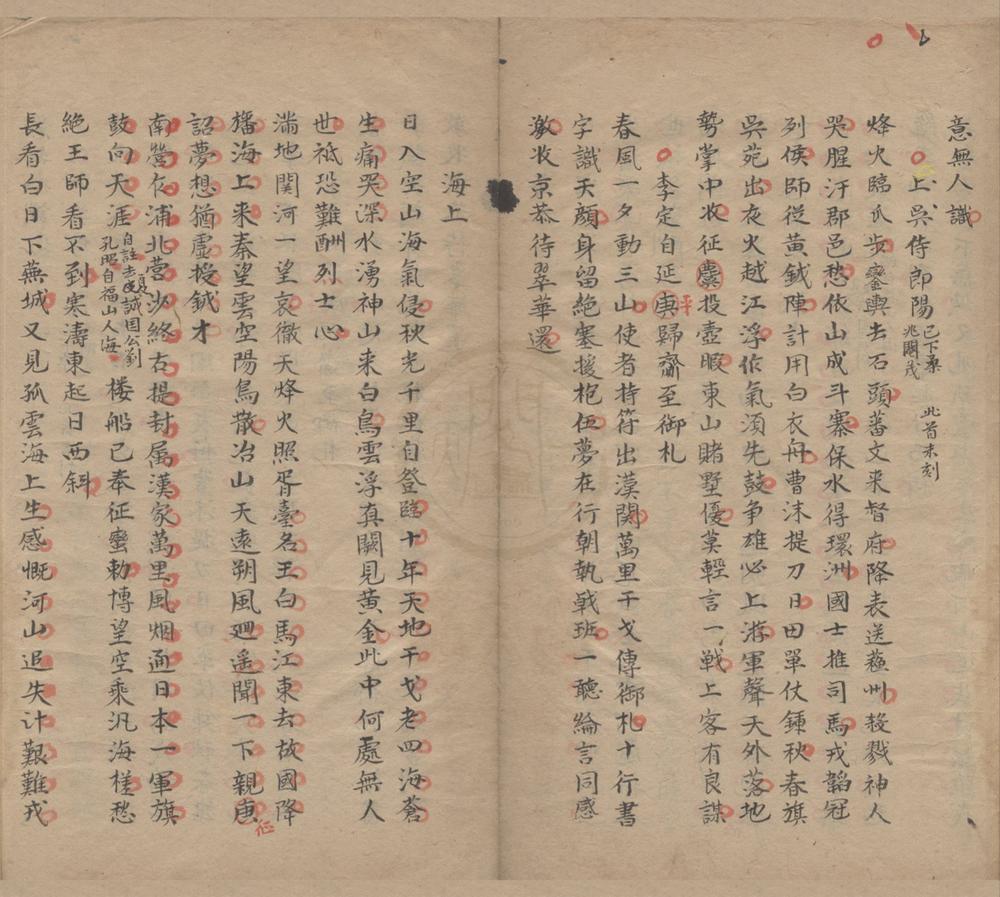 意無人識
上吳侍郎陽 已下桑兆闊茂 此首未刻
烽火臨瓜步鑾輿去石頭蕃文来督府降表送蘓州殺戮神人
哭腥汙郡邑愁依山成斗寨保水得環洲國士推司馬戎韜冠
列侯師從黃鉞陣計用白衣舟曹沬提刀日田單仗鍤秋春旗
吳苑出夜火越江浮作氣湏先鼓争雄必上游軍聲天外落地
勢掌中收征虜投壺暇東山賭墅優莫輕言一戰上客有良謀
李定自延平歸齎至御札
春風一夕動三山使者持符出漢関萬里干戈傳御札十行書
字識天顏身留絶塞援枹伍夢在行朝執戟班一聽綸言同感
激收京恭待翠華還
海上
日入空山海氣侵秋光千里自登臨十年天地干戈老四海蒼
生痛哭深水湧神山来白鳥雲浮真闕見黃金此中何處無人
世祗恐難酬烈士心
滿地関河一望哀徹天烽火照胥臺名王白馬江東去故國降
旛海上来秦望雲空陽鳥散冶山天遠朔風廻遥聞一下親虜
詔夢想猶虛授鉞才
南營乍浦北營沙終古提封属漢家萬里風烟通日本一軍旗
鼓向天涯 自註去夏誠国公劉孔昭自福山入海 楼船已奉征蠻勅博望空乘汎海槎愁
絶王師看不到寒濤東起日西斜
長看白日下蕪城又見孤雲海上生感慨河山追失计艱難戎